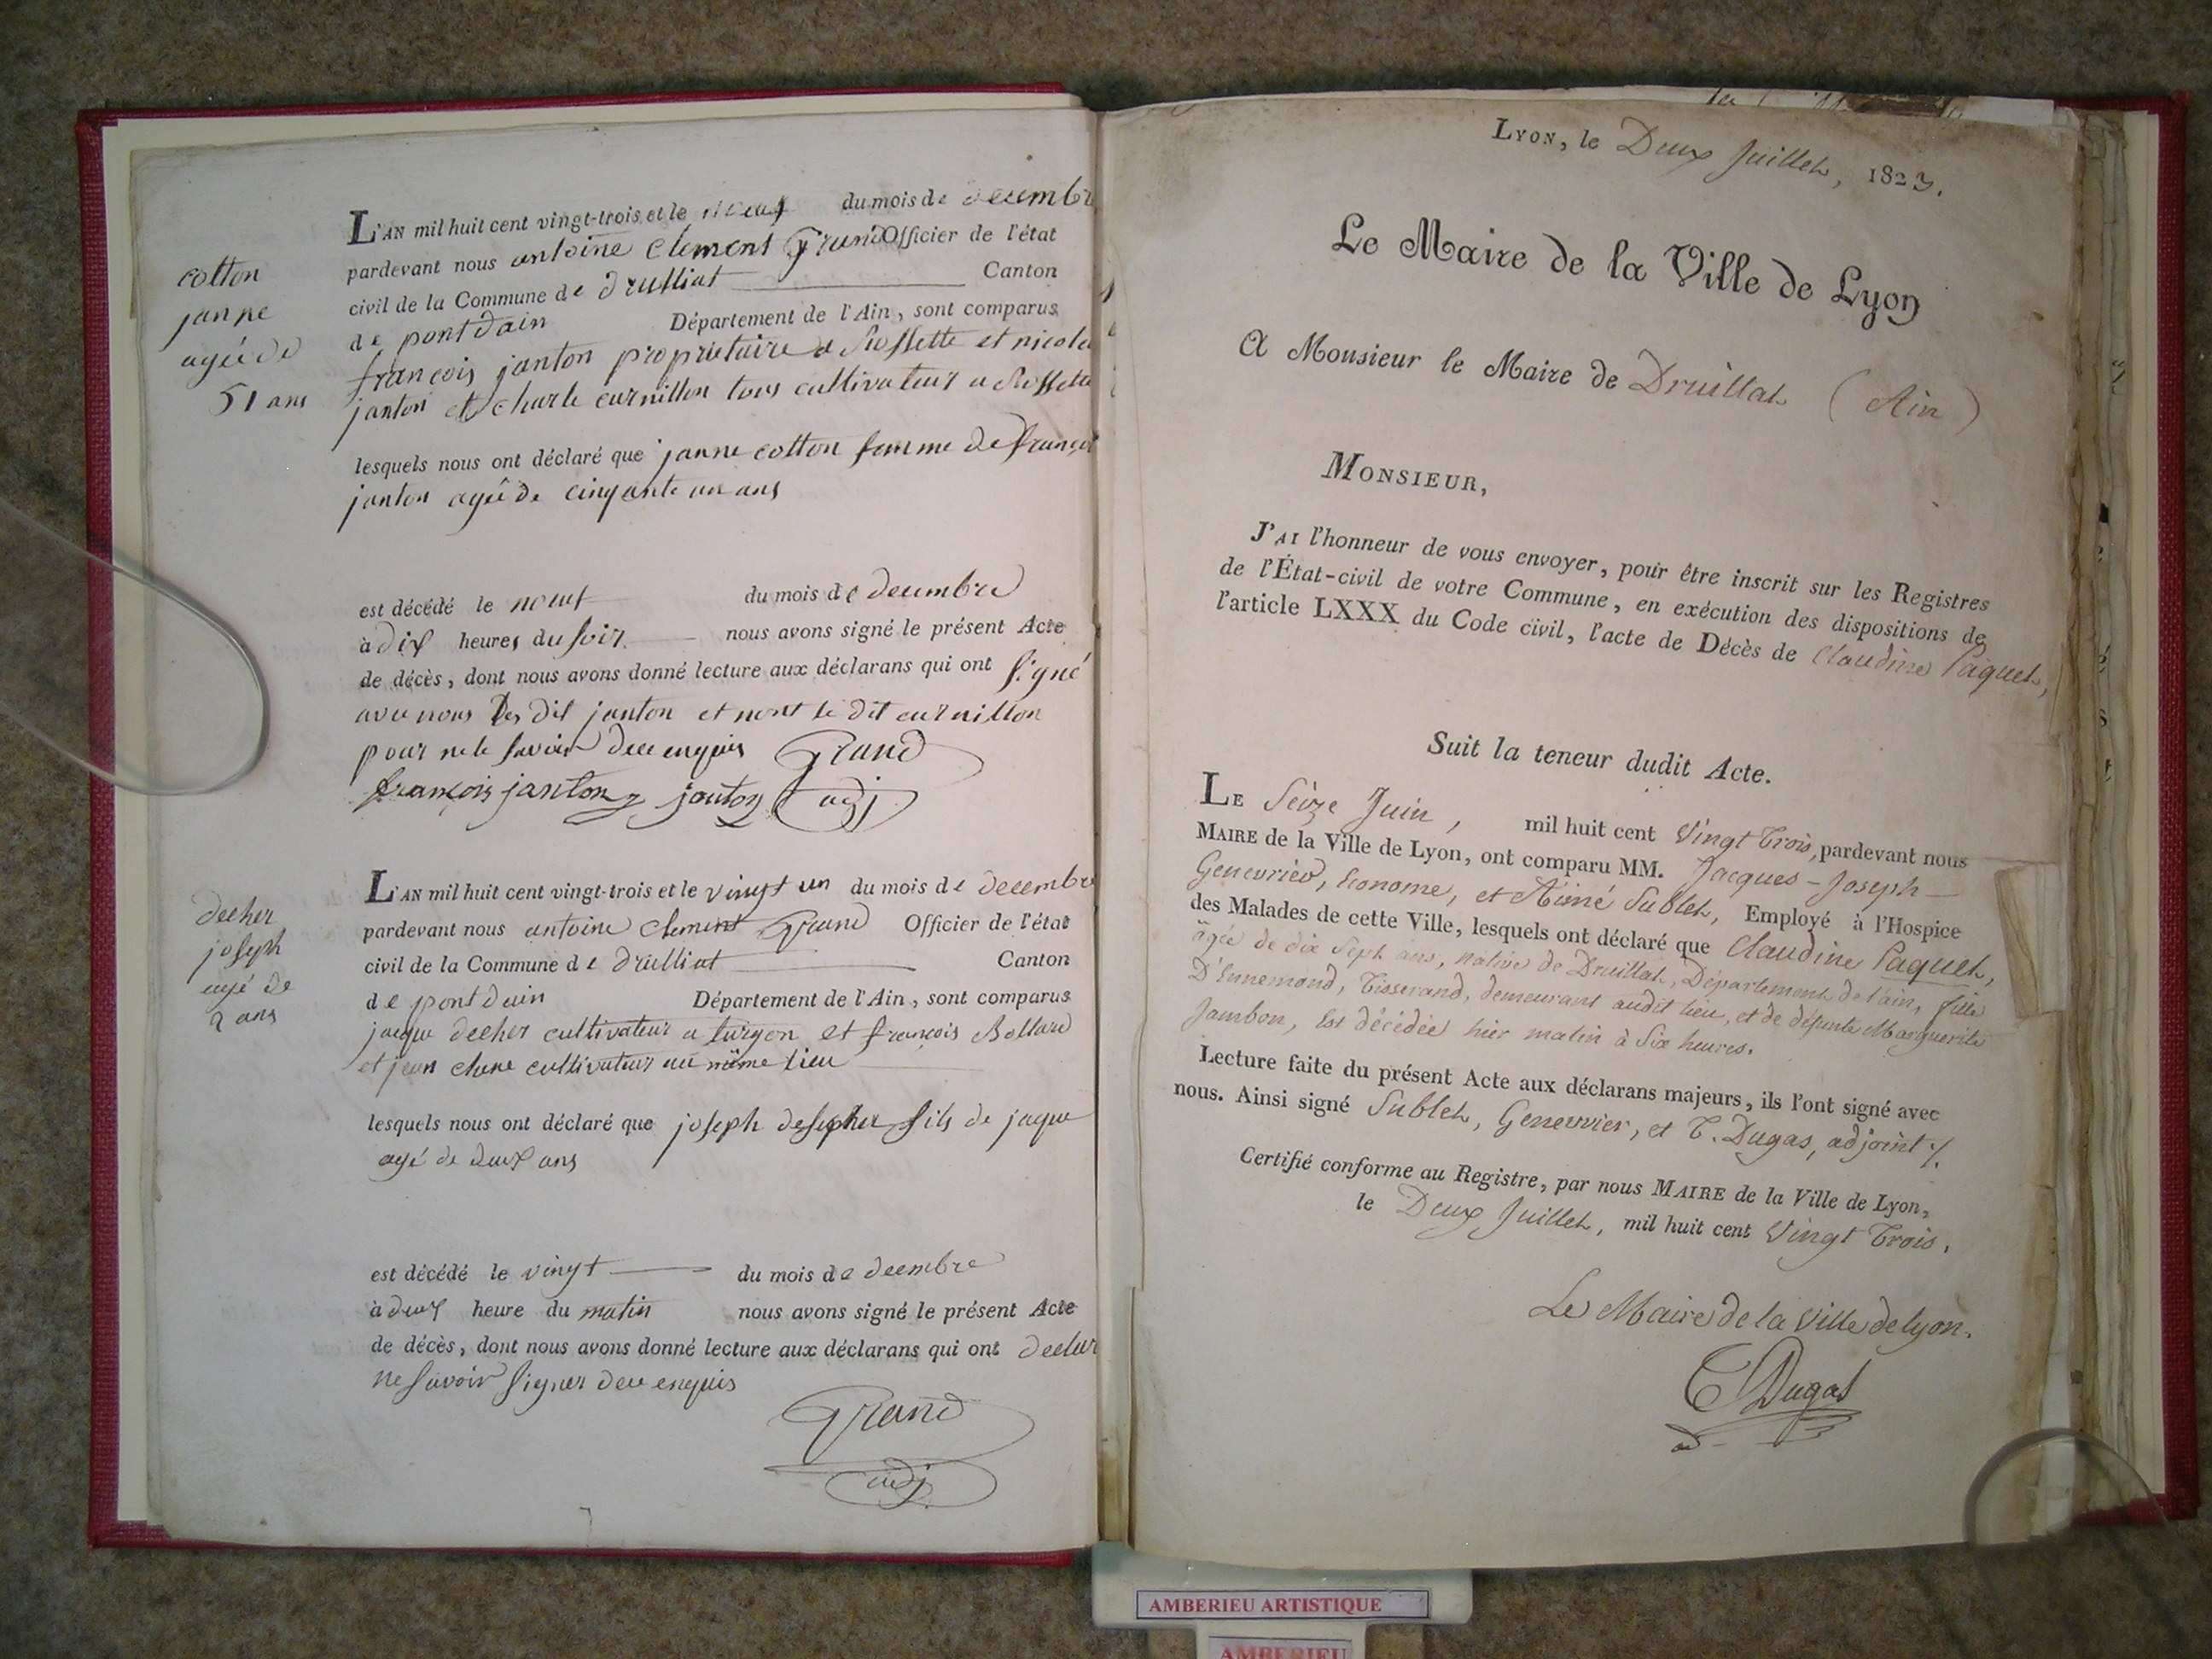 cotton
janne
ageé de
51 ans
L'AN mil huit cent vingt-trois et le neuf du mois de decembre
pardevant nous antoine clement Grand Officier de l'état
civil de la Commune de druillat Canton
de pontdain Département de l'Ain, sont comparus
françois janton propriétaire a Rossette et nicola
janton et charle curnillon tous cultivateur a Rossette
lesquels nous ont déclaré que janne cotton femme de françois
janton ageé de cinquante un ans
est décédé le neuf du mois de decembre
à dix heures du soir. nous avons signé le présent Acte
de décès, dont nous avons donné lecture aux déclarans qui ont signé
avec nous les dit janton et nont le dit curnillon
pour ne le savoir dece enquis Grand
françois janton janton adj
decher
joseph
agé de
2 ans
L'AN mil huit cent vingt-trois et le vingt un du mois de decembre
pardevant nous antoine clement Grand Officier de l'état
civil de la Commune de druilliat Canton
de pont dain Département de l'Ain, sont comparus
jaque decher cultivateur a turgon et françois Bollard
et jean cultivateur au même lieu
lesquels nous ont déclaré que joseph fils de jaque
agé de deux ans
est décédé le vingt du mois de decembre
à deux heure du matin nous avons signé le présent Acte
de décès, dont nous avons donné lecture aux déclarans qui ont declar
ne savoir signer dece enquis
Grand
adj
LYON, le Deux Juillet, 1823.
Le Maire de la Ville de Lyon
A Monsieur le Maire de Druillat (Ain)
MONSIEUR,
J'AI l'honneur de vous envoyer, pour être inscrit sur les Registres
de l'État-civil de votre Commune, en exécution des dispositions de
l'article LXXX du Code civil, l'acte de Décès de Claudine Paquet,
Suit la teneur dudit Acte.
LE Seize Juin, mil huit cent Vingt Trois, pardevant nous
MAIRE de la Ville de Lyon, ont comparu MM. Jacques-Joseph
Genevrier, Econome, et Aimé Sublet, Employé à l'Hospice
des Malades de cette Ville, lesquels ont déclaré que Claudine Paquet,
âgée de dix Sept ans, native de Druillat, Département de l'ain, fille
D'Ennemond, Tisserand, demeurant audit lieu, et de défunte Marguerite
Jambon, Est décédée hier matin à Six heures.
Lecture faite du présent Acte aux déclarans majeurs, ils l'ont signé avec
nous. Ainsi signé Sublet, Genevrier, et C. Dugas, adjoint ./.
Certifié conforme au Registre, par nous MAIRE de la Ville de Lyon,
le Deux Juillet, mil huit cent Vingt Trois,
Le Maire de la Ville de Lyon.
C Dugas
ad-
AMBERIEU ARTISTIQUE
AMBERIEU